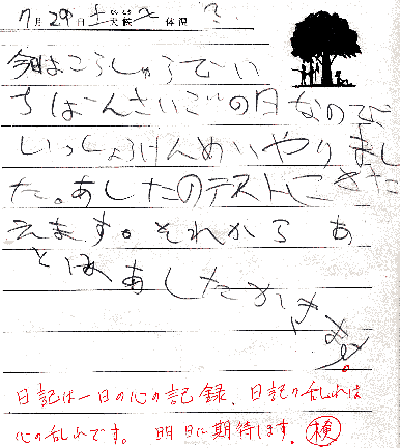 7月29日土 天候 体温
今日はこうしゅうでい
ちばんさいごの日なので
いっしょうけんめいやりまし
た。あしたのテストにそな
えます。それから あ
とは、あしたかけ
日記は一日の心の記録、日記の乱れは
心の乱れです。 明日に期待します。 検